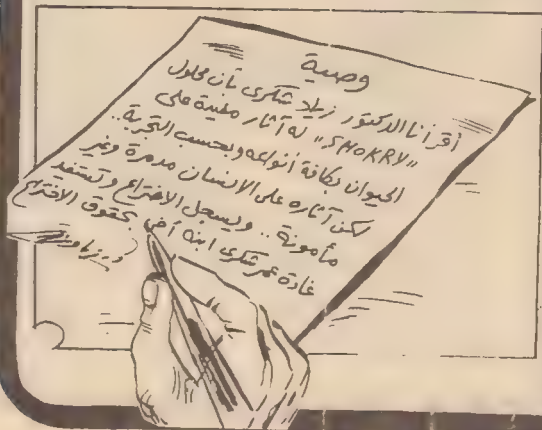 وصية
أقر أنا الدكتور زيلا شكرى بأن محلول
"SHOKRY" له آثار مفيدة على
الحيوان بكافة أنواعه وبحسب التجربة..
لكن آثاره على الانسان مدمرة وغير
مأمونة.. ويسجل الاختراع وتستفيد
غادة عمر شكرى ابنة أخى بحقوق الاختراع